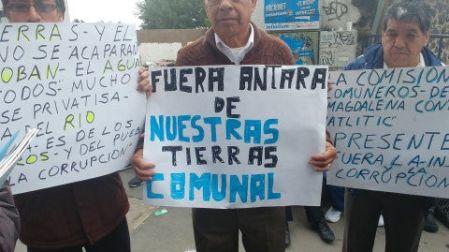 ERRAS - Y EL
NO SE ACAPARAN
OBAN - EL AGUA
TODOS: MUCHO
SE PRIVATISA
EL RIO
ES DE LOS
OS - Y DEL PUEB
LA CORRUPCIÓN
FUERA ANTARA
DE
NUESTRAS
TIERRAS
COMUNAL
LA COMISIÓN
OMUNEROS - DE
MAGDALENA CONT
ATLITIC
PRESENTE
FUERA LA IN
Y LA
CORRUPCIÓN